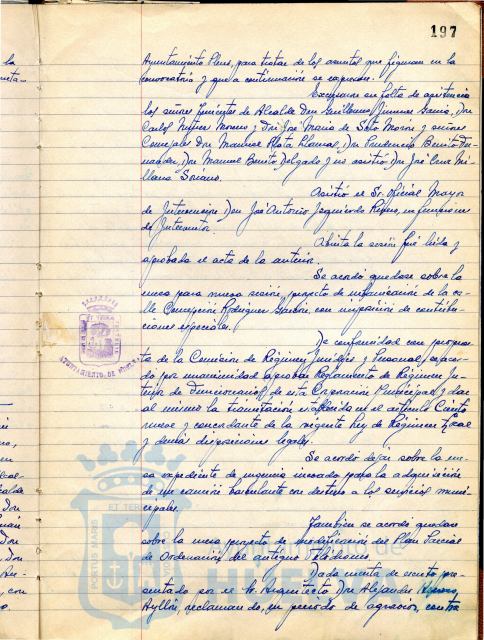 197
Ayuntamiento Pleno, para tratar de los asuntos que figuran en la
convocatoria y que a continuación se expresan.
Excusaron su falta de asistencia
los señores Tenientes de Alcalde Don Guillermo Jimenez García, Don
Carlos Moreno y Don José María de Soto Morón y señores
Concejales Don Manuel Plata Llamas, Don Prudencio Benito Fer-
nandez, Don Manuel Benito Delgado y no asistió Don José Cruz Mi-
llano Soriano.
Asistió el Sr. Oficial Mayor
de Intervención, Don José Antonio Izquierdo Rivero, en funciones
de Interventor.
Abierta la sesión fué leída y
aprobada el acta de la anterior.
Se acordó quedase sobre la
mesa para nueva sesión, proyecto de urbanización de la ca-
lle Concepción Rodríguez Garzón, con imposición de contribu-
ciones especiales.
De conformidad con propues-
ta de la Comisión de Régimen Jurídico y Personal, se acor-
dó por unanimidad aprobar Reglamento de Régimen In-
terior de Funcionarios de esta Corporación Municipal y dar
al mismo la tramitación establecida en el artículo Ciento
nueve y concordante de la vigente Ley de Régimen Local
y demás disposiciones legales.
Se acordó dejar sobre la me-
sa expediente de urgencia incoado para la adquisición
de un camión basculante con destino a los servicios muni-
cipales.
Tambien se acordó quedase
sobre la mesa proyecto de modificación del Plan Parcial
de Ordenación del antiguo Velódromo.
Dada cuenta de escrito pre-
sentado por el Sr. Arquitecto Don Alejandro Herrero
Ayllón, reclamando, en periodo de agravios, contra
AYUNTAMIENTO DE HUELVA
PORTUS MARIS
ET TERRE